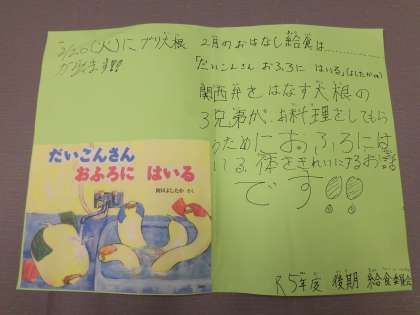 2/20(火)に ブリ大根
が出ます!!
2月のおはなし給食は…………
「だいこんさん おふろに はいる」
関西弁をはなす大根の
3兄弟が、お料理をしてもら
うためにおふろには
いる、体をきれいにするお話
です!!
だいこんさん
おふろに はいる
岡田よしたか さく
R5年度 後期 給食委員会